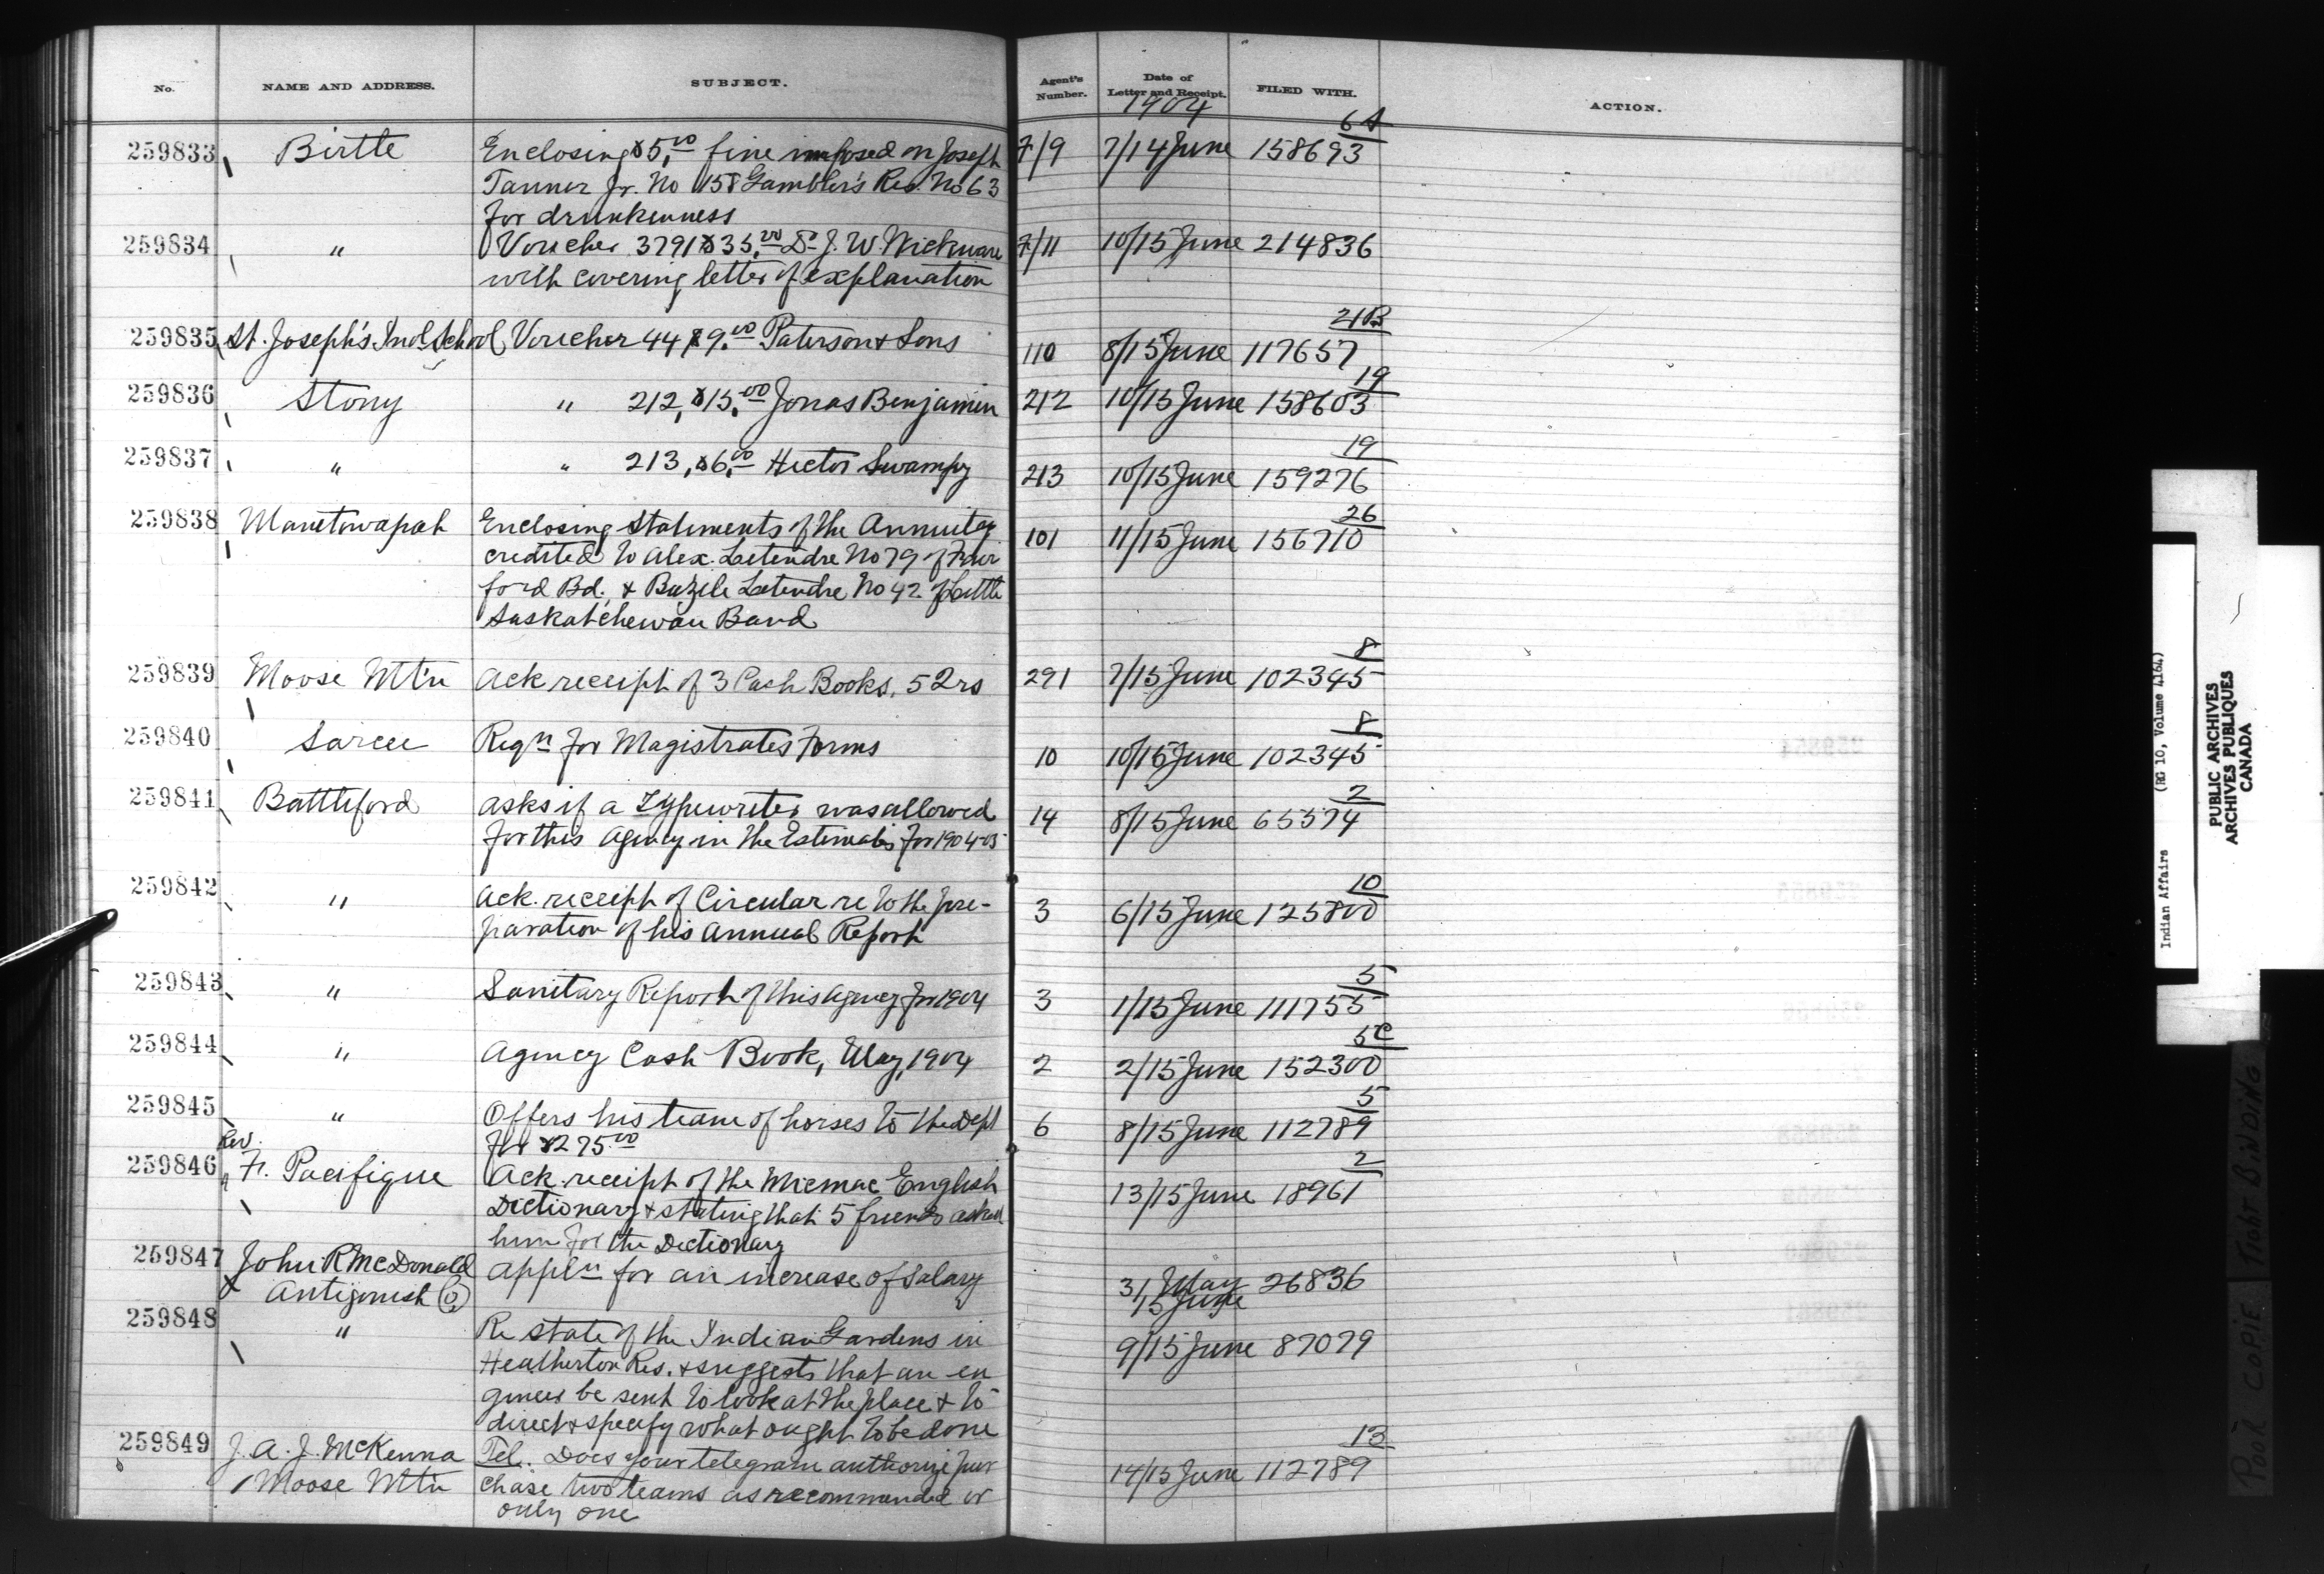 No. NAME AND ADDRESS. SUBJECT. Agent's Number. Date of Letter and Receipt. FILED WITH. ACTION.
1904
259833 Birtle Enclosing $5.00 fine imposed on Joseph 7/9 7/14 June 158693 6A
Tanner Jr. No 158 Gambler's Res. No 63
for drunkenness
259834 " Voucher 3791 $35.00 Dr J. W Wickware 7/11 10/15 June 214836
with covering letter of explanation
259835 St. Joseph's Ind. School Voucher 44 $9.00 Paterson & Sons 110 8/15 June 117657 21B
259836 Stony " 212, $15.00 Jonas Benjamin 212 10/15 June 158603 19
259837 " " 213, $6.00 Hector Swampy 213 10/15 June 159276 19
259838 Manitowapah Enclosing Statements of the Annuity 101 11/15 June 156710 26
credited to Alex. Letendre No 79 of Fair
ford Bd. & Bazile Letendre No 42 of Little
Saskatchewan Band
259839 Moose Mt'n Ack receipt of 3 Cash Books, 52rs 291 7/15 June 102345 8
259840 Sarcee Reqn for Magistrates Forms 10 10/15 June 102345 8
259841 Battleford Asks if a Typewriter was allowed 14 8/15 June 65574 2
for this Agency in the Estimates for 1904-05
259842 " Ack. receipt of Circular re to the pre- 3 6/15 June 125800 10
paration of his Annual Report
259843 " Sanitary Report of this Agency for 1904 3 1/15 June 111755 5
259844 " Agency Cash Book, May, 1904 2 2/15 June 152300 5C
259845 " Offers his team of horses to the Dept 6 8/15 June 112789 5
for $275.00
259846 Rev. Fr. Pacifique Ack. receipt of the Micmac English 13/15 June 18961 2
Dictionary & stating that 5 friends asked
him for the Dictionary
259847 John R McDonald Appln for an increase of Salary 31 May 26836
Antigonish 15 June
259848 " Re state of the Indian Gardens in 9/15 June 87079
Heatherton Res. & suggests that an en
gineer be sent to look at the place & to
direct & specify what ought to be done
259849 J. A. J. McKenna Tel. Does your telegram authorize pur 14/15 June 112789 13
Moose Mt'n chase two teams as recommended or
only one
Indian Affairs (RG 10, Volume 4164)
PUBLIC ARCHIVES
ARCHIVES PUBLIQUES
CANADA
POOR COPIE TIGHT BINDING